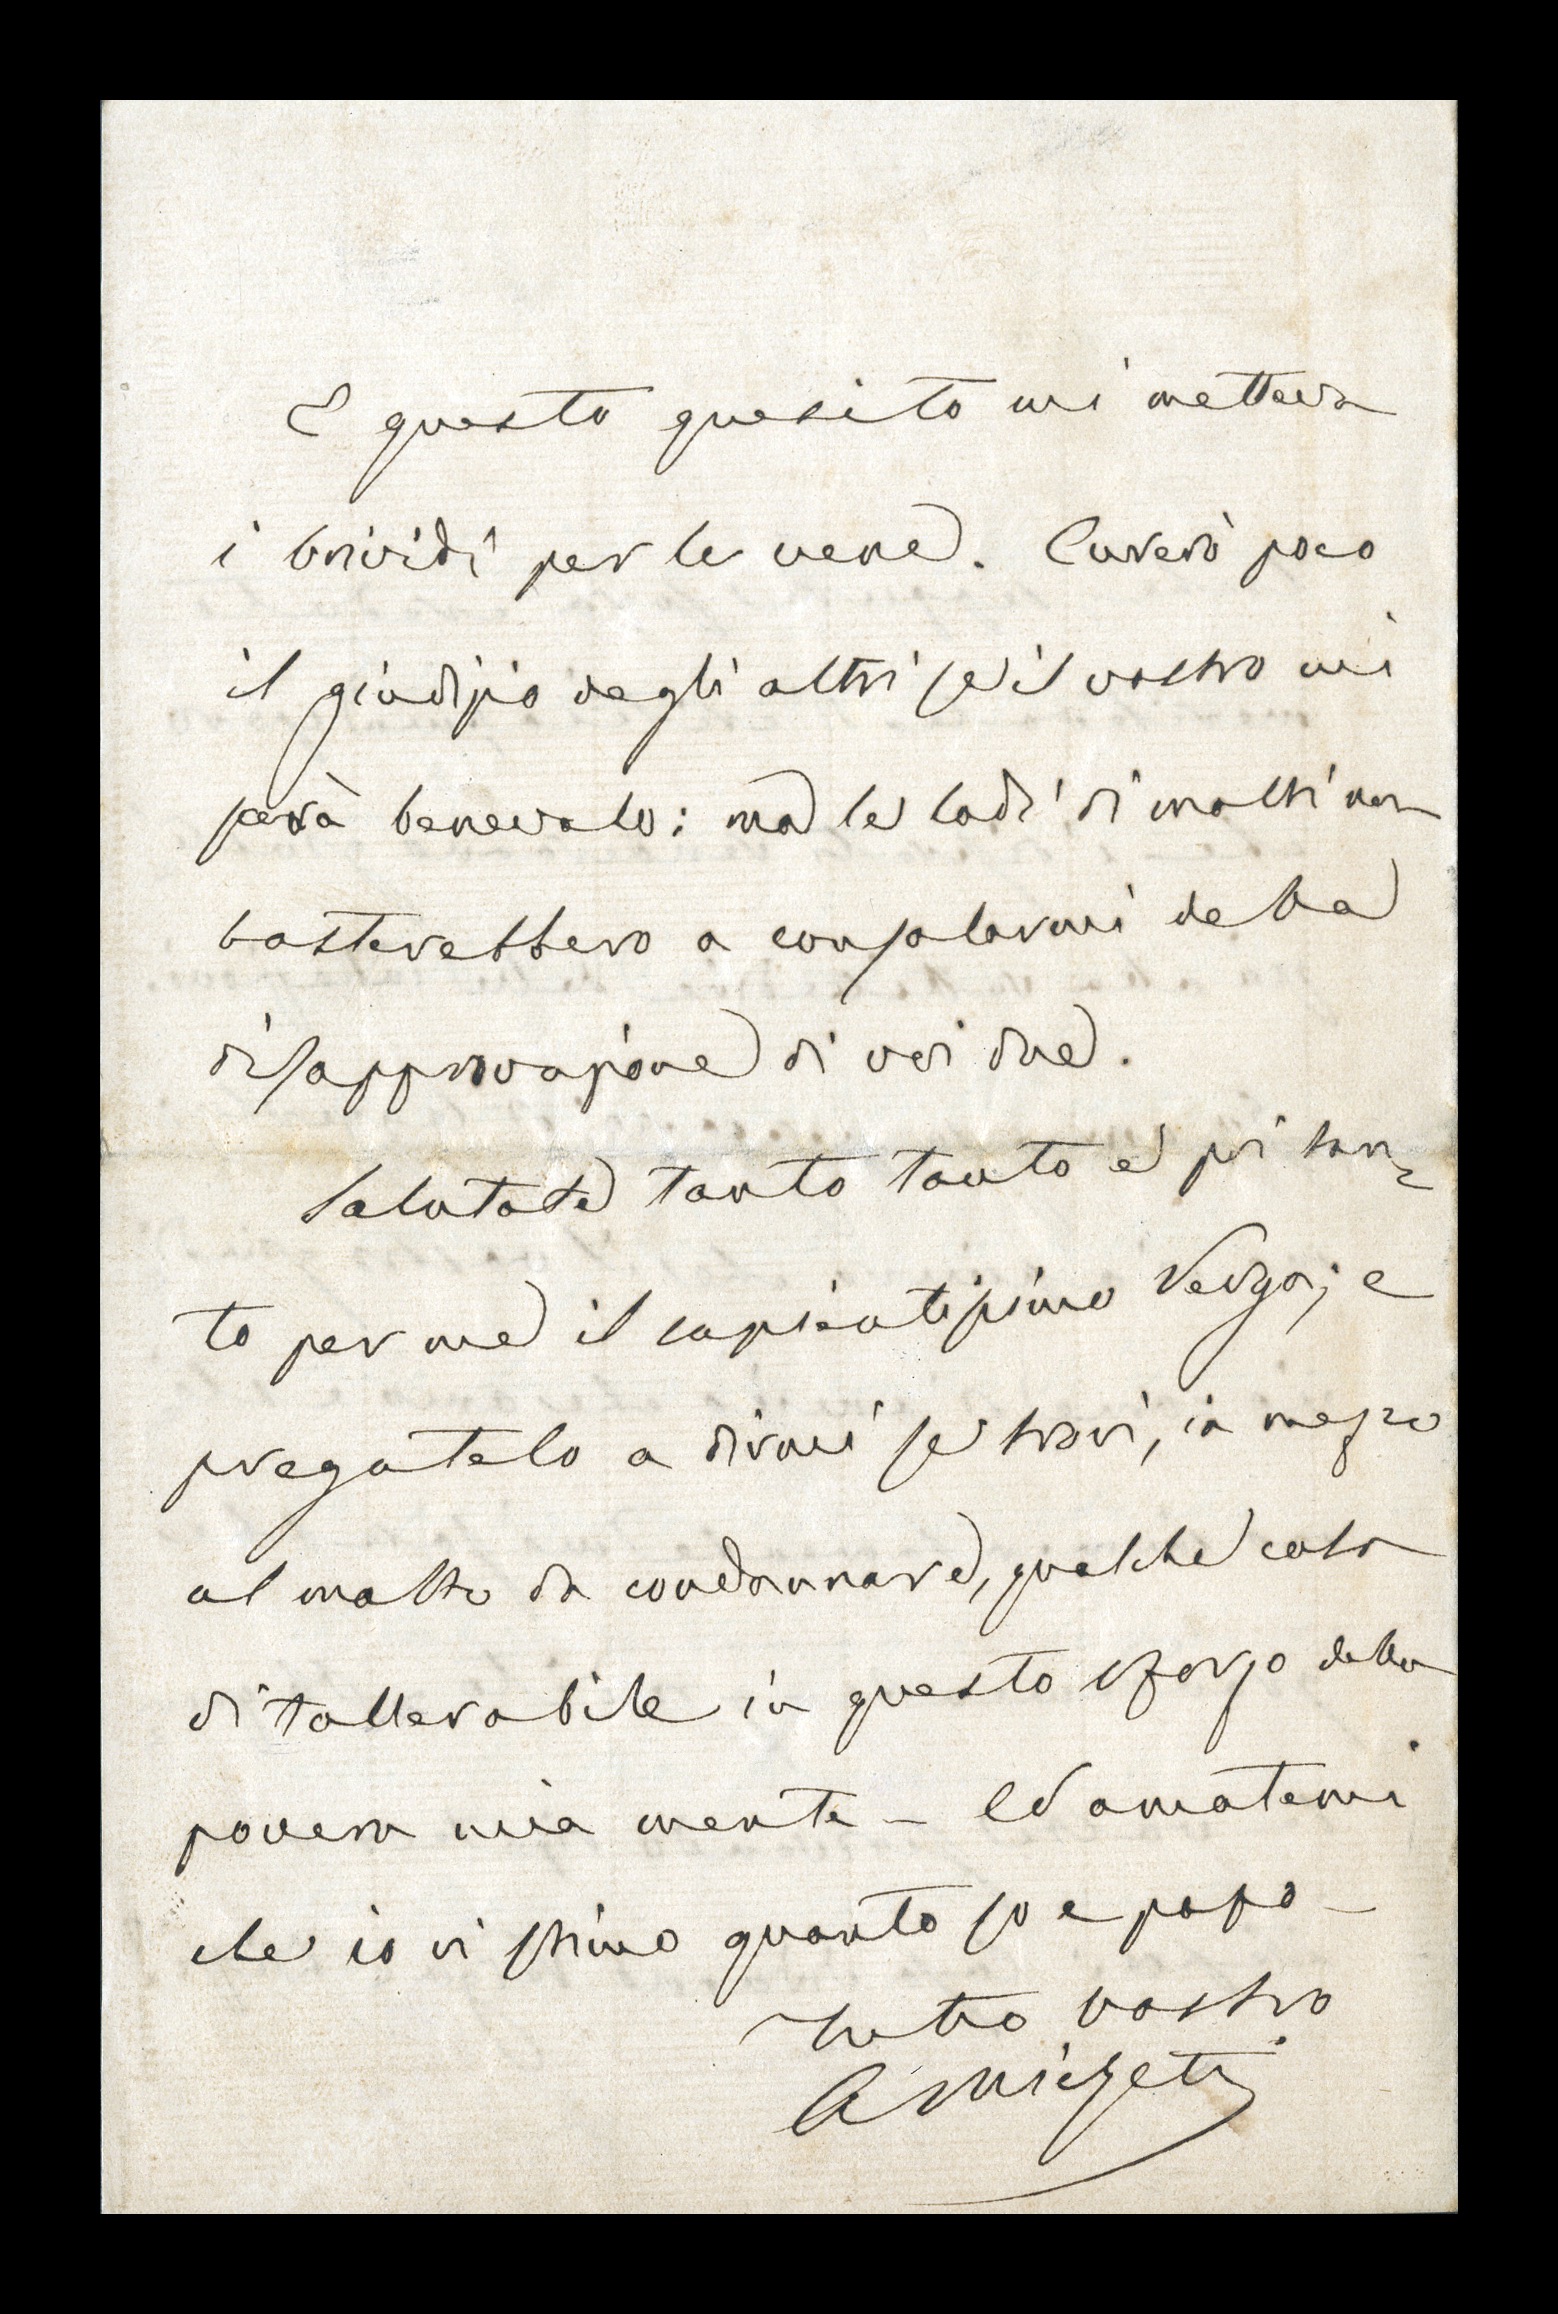 E questo quesito mi metteva
i brividi per le vene. Curerò poco
il giudizio degli altri se il vostro mi
sarà benevolo: ma le lodi di molti non
basterebbero a consolarmi della
disapprovazione di voi due.
Salutate tanto tanto e poi tan-
to per me il sapientissimo Verga; e
pregatelo a dirmi se trovi, in mezzo
al molto da condannare, qualche cosa
di tollerabile in questo sforzo della
povera mia mente - Ed amatemi
che io vi stimo quanto so e posso -
Tutto vostro